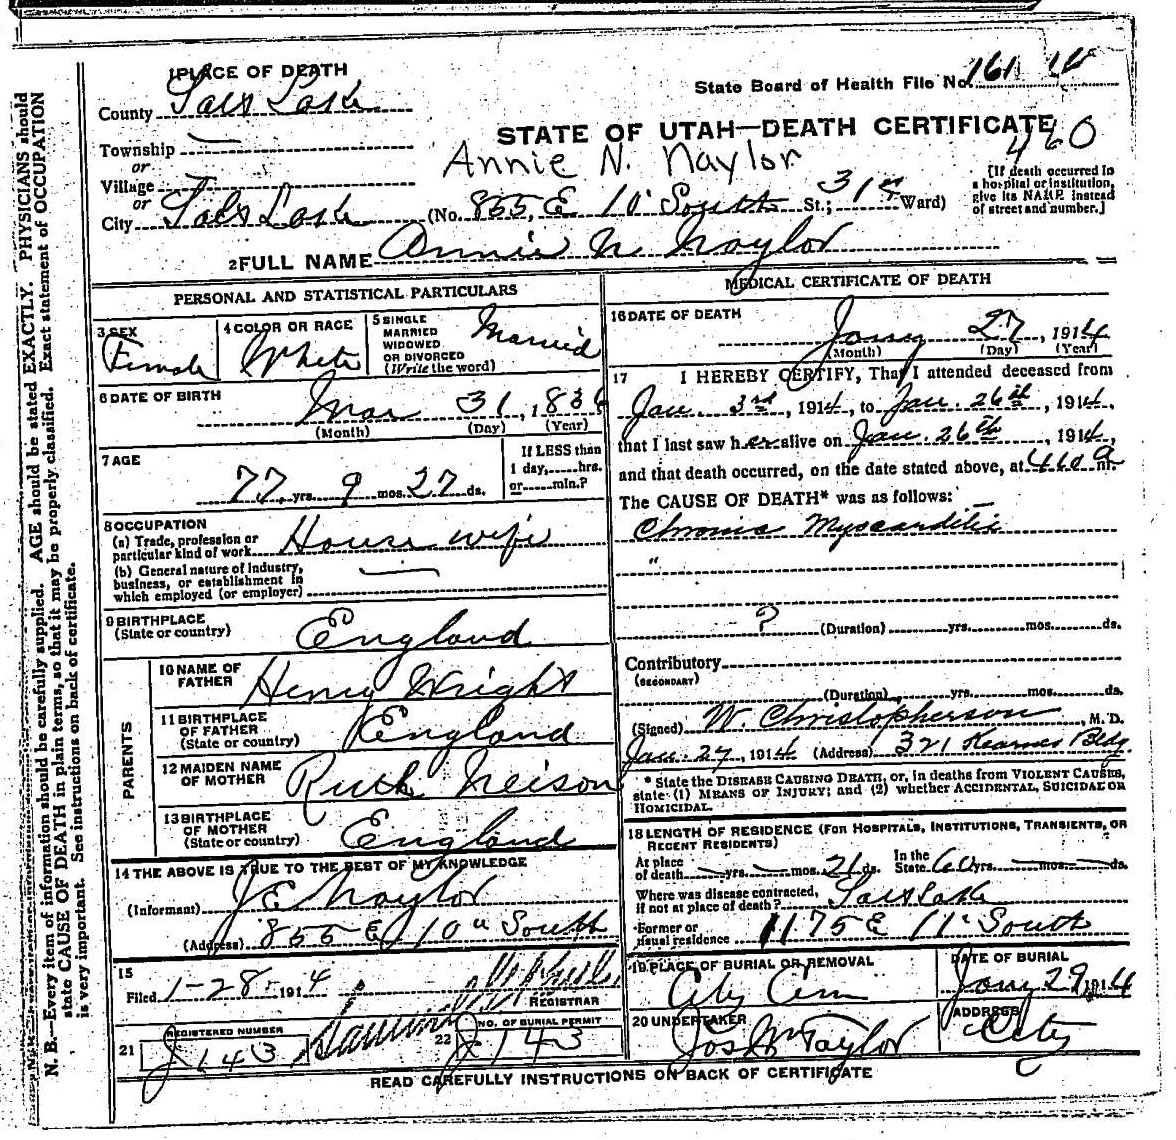 N. B.—Every item of information should be carefully supplied. AGE should be stated EXACTLY. PHYSICIANS should
state CAUSE OF DEATH in plain terms, so that it may be properly classified. Exact statement of OCCUPATION
is very important. See instructions on back of certificate.
1 PLACE OF DEATH
County Salt Lake
State Board of Health File No. 161
STATE OF UTAH—DEATH CERTIFICATE
460
Township
or
Annie N. Naylor
Village
or
City Salt Lake (No. 855 E 10" South St.; 31st Ward)
[If death occurred in
a hospital or institution,
give its NAME instead
of street and number.]
2 FULL NAME Annie N. Naylor
PERSONAL AND STATISTICAL PARTICULARS
3 SEX
Female
4 COLOR OR RACE
White
5 SINGLE
MARRIED
WIDOWED
OR DIVORCED
(Write the word)
Married
6 DATE OF BIRTH
Mar 31, 1836
(Month) (Day) (Year)
7 AGE
77 yrs. 9 mos. 27 ds.
If LESS than
1 day,......hrs.
or......min.?
8 OCCUPATION
(a) Trade, profession or
particular kind of work House wife
(b) General nature of Industry,
business, or establishment in
which employed (or employer)
9 BIRTHPLACE
(State or country) England
PARENTS
10 NAME OF
FATHER Henry Wright
11 BIRTHPLACE
OF FATHER
(State or country) England
12 MAIDEN NAME
OF MOTHER Ruth Neison
13 BIRTHPLACE
OF MOTHER
(State or country) England
14 THE ABOVE IS TRUE TO THE BEST OF MY KNOWLEDGE
(Informant) J E Naylor
(Address) 855 E 10" South
15
Filed 1-28- 1914
REGISTRAR
REGISTERED NUMBER
21 J 143
NO. OF BURIAL PERMIT
22 J 143
MEDICAL CERTIFICATE OF DEATH
16 DATE OF DEATH
Jany 27, 1914
(Month) (Day) (Year)
17 I HEREBY CERTIFY, That I attended deceased from
Jan. 3rd, 1914, to Jan. 26th, 1914,
that I last saw her alive on Jan. 26th, 1914,
and that death occurred, on the date stated above, at 410 a m.
The CAUSE OF DEATH* was as follows:
Chronic Myocarditis
"
? (Duration) yrs. mos. ds.
Contributory
(SECONDARY)
(Duration) yrs. mos. ds.
(Signed) W. Christopherson, M. D.
Jan. 27, 1914 (Address) 321 Kearns Bldg
* State the DISEASE CAUSING DEATH, or, in deaths from VIOLENT CAUSES,
state (1) MEANS OF INJURY; and (2) whether ACCIDENTAL, SUICIDAL OR
HOMICIDAL.
18 LENGTH OF RESIDENCE (FOR HOSPITALS, INSTITUTIONS, TRANSIENTS, OR
RECENT RESIDENTS)
At place
of death yrs. mos. 21 ds. In the
State 60 yrs. mos. ds.
Where was disease contracted,
if not at place of death? Salt Lake
Former or
usual residence 1175 E 11" South
19 PLACE OF BURIAL OR REMOVAL
City Cem
DATE OF BURIAL
Jany 29, 1914
20 UNDERTAKER
Jos Wm Taylor
ADDRESS
City
READ CAREFULLY INSTRUCTIONS ON BACK OF CERTIFICATE